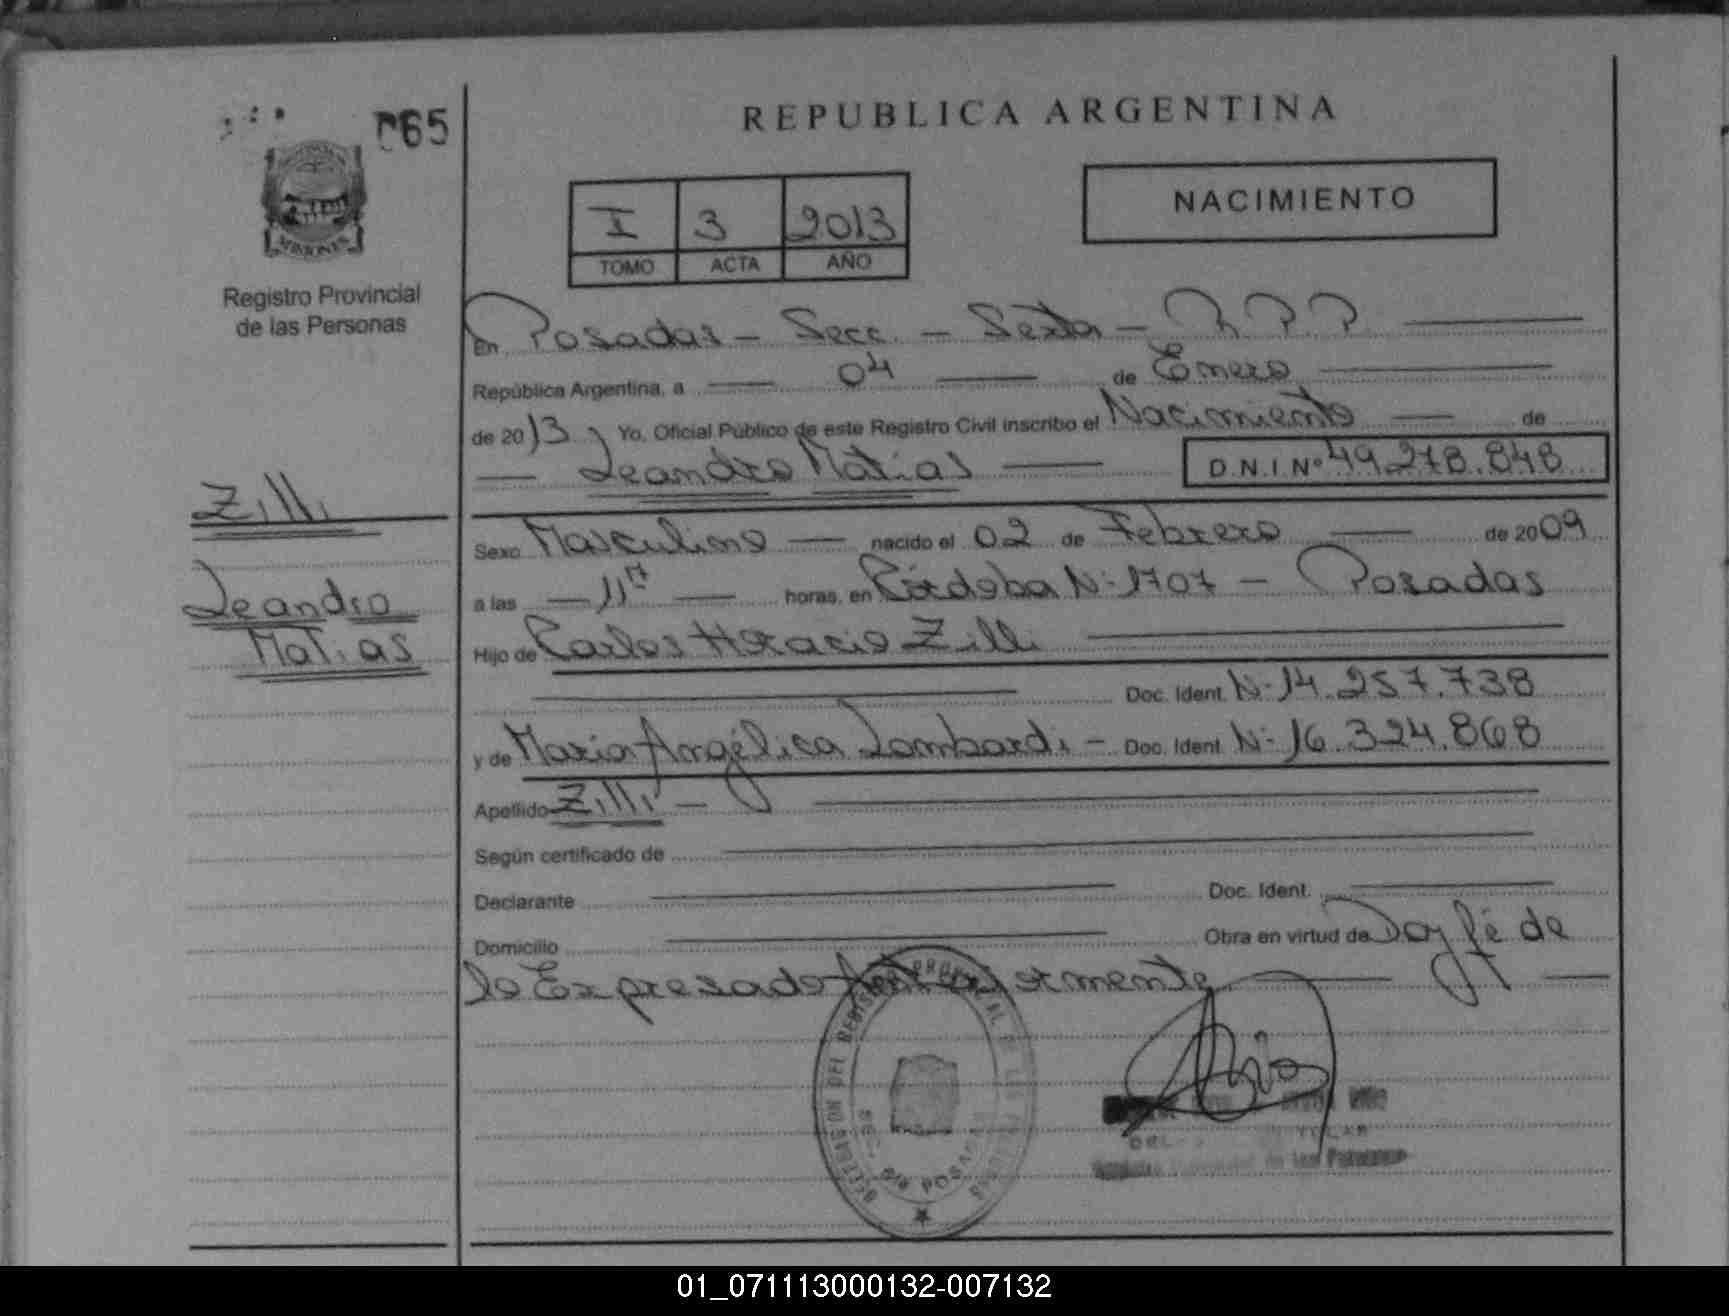 065
REPUBLICA ARGENTINA
MISIONES
Registro Provincial
de las Personas
I 3 2013
TOMO ACTA AÑO
NACIMIENTO
En Posadas - Secc. - Sexta - R.P.P.
República Argentina, a 04 de Enero
de 2013, Yo, Oficial Público de este Registro Civil inscribo el Nacimiento de
Leandro Matias D.N.I.Nº 49.278.848
Zilli
Leandro
Matias
Sexo Masculino nacido el 02 de Febrero de 2009
a las 11 horas, en Córdoba Nº 1707 - Posadas
Hijo de Carlos Horacio Zilli
Doc. Ident. Nº 14.257.738
y de Maria Angélica Lombardi - Doc. Ident. Nº 16.324.868
Apellido Zilli -
Según certificado de
Declarante Doc. Ident.
Domicilio Obra en virtud de Doy fé de
lo Expresado Anteriormente
DELEGACION DEL REGISTRO PROVINCIAL DE LAS PERSONAS
POSADAS
de las Personas
01_071113000132-007132